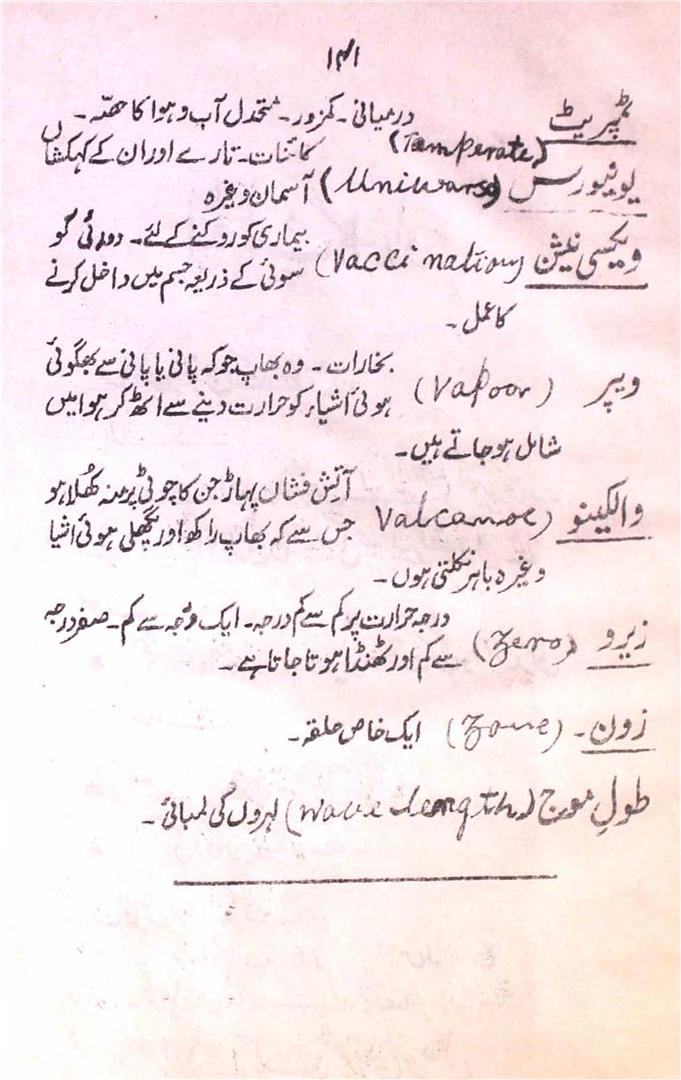 ۱۴۱
ٹمپریٹ درمیانی۔ کمزور۔ معتدل آب و ہوا کا حصّہ۔
(Temperate)
یونیورس (Uniwarse) کائنات۔ تارے اور ان کے کہکشاں
آسمان وغیرہ
ویکسی نیشن (Vaccination) بیماری کو روکنے کے لئے۔ دوائی کو
سوئی کے ذریعہ جسم میں داخل کرنے
کا عمل۔
ویپر (Vapoor) بخارات۔ وہ بھاپ جو کہ پانی یا پانی سے بھگوئی
ہوئی اشیاء کو حرارت دینے سے اٹھ کر ہوا میں
شامل ہو جاتے ہیں۔
والکینو (Valcanoe آتش فشاں پہاڑ جن کا چوٹی پر منہ کھُلا ہو
جس سے کہ بھاپ راکھ اور پگھلی ہوئی اشیا
وغیرہ باہر نکلتی ہوں۔
زیرو (Zero) درجہ حرارت پر کم سے کم درجہ۔ ایک درجہ سے کم۔ صفر درجہ
سے کم اور ٹھنڈا ہوتا جاتا ہے۔
زون۔ (Zone) ایک خاص حلقہ۔
طولِ موج (wave length) لہروں کی لمبائی۔